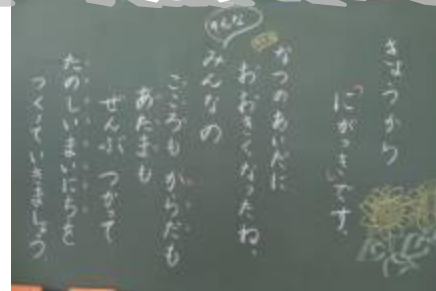 きょうから
にがっきです。
なつのあいだに
おおきくなったね。
みんなの
こころも からだも
あたまも
ぜんぶ つかって
たのしいまいにちを
つくっていきましょう